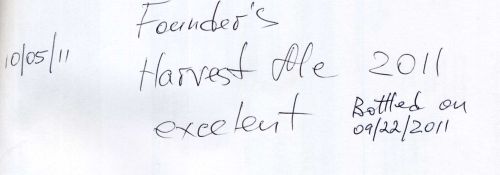 Founder's
10/05/11
Harvest Ale 2011
excelent
Bottled on
09/22/2011